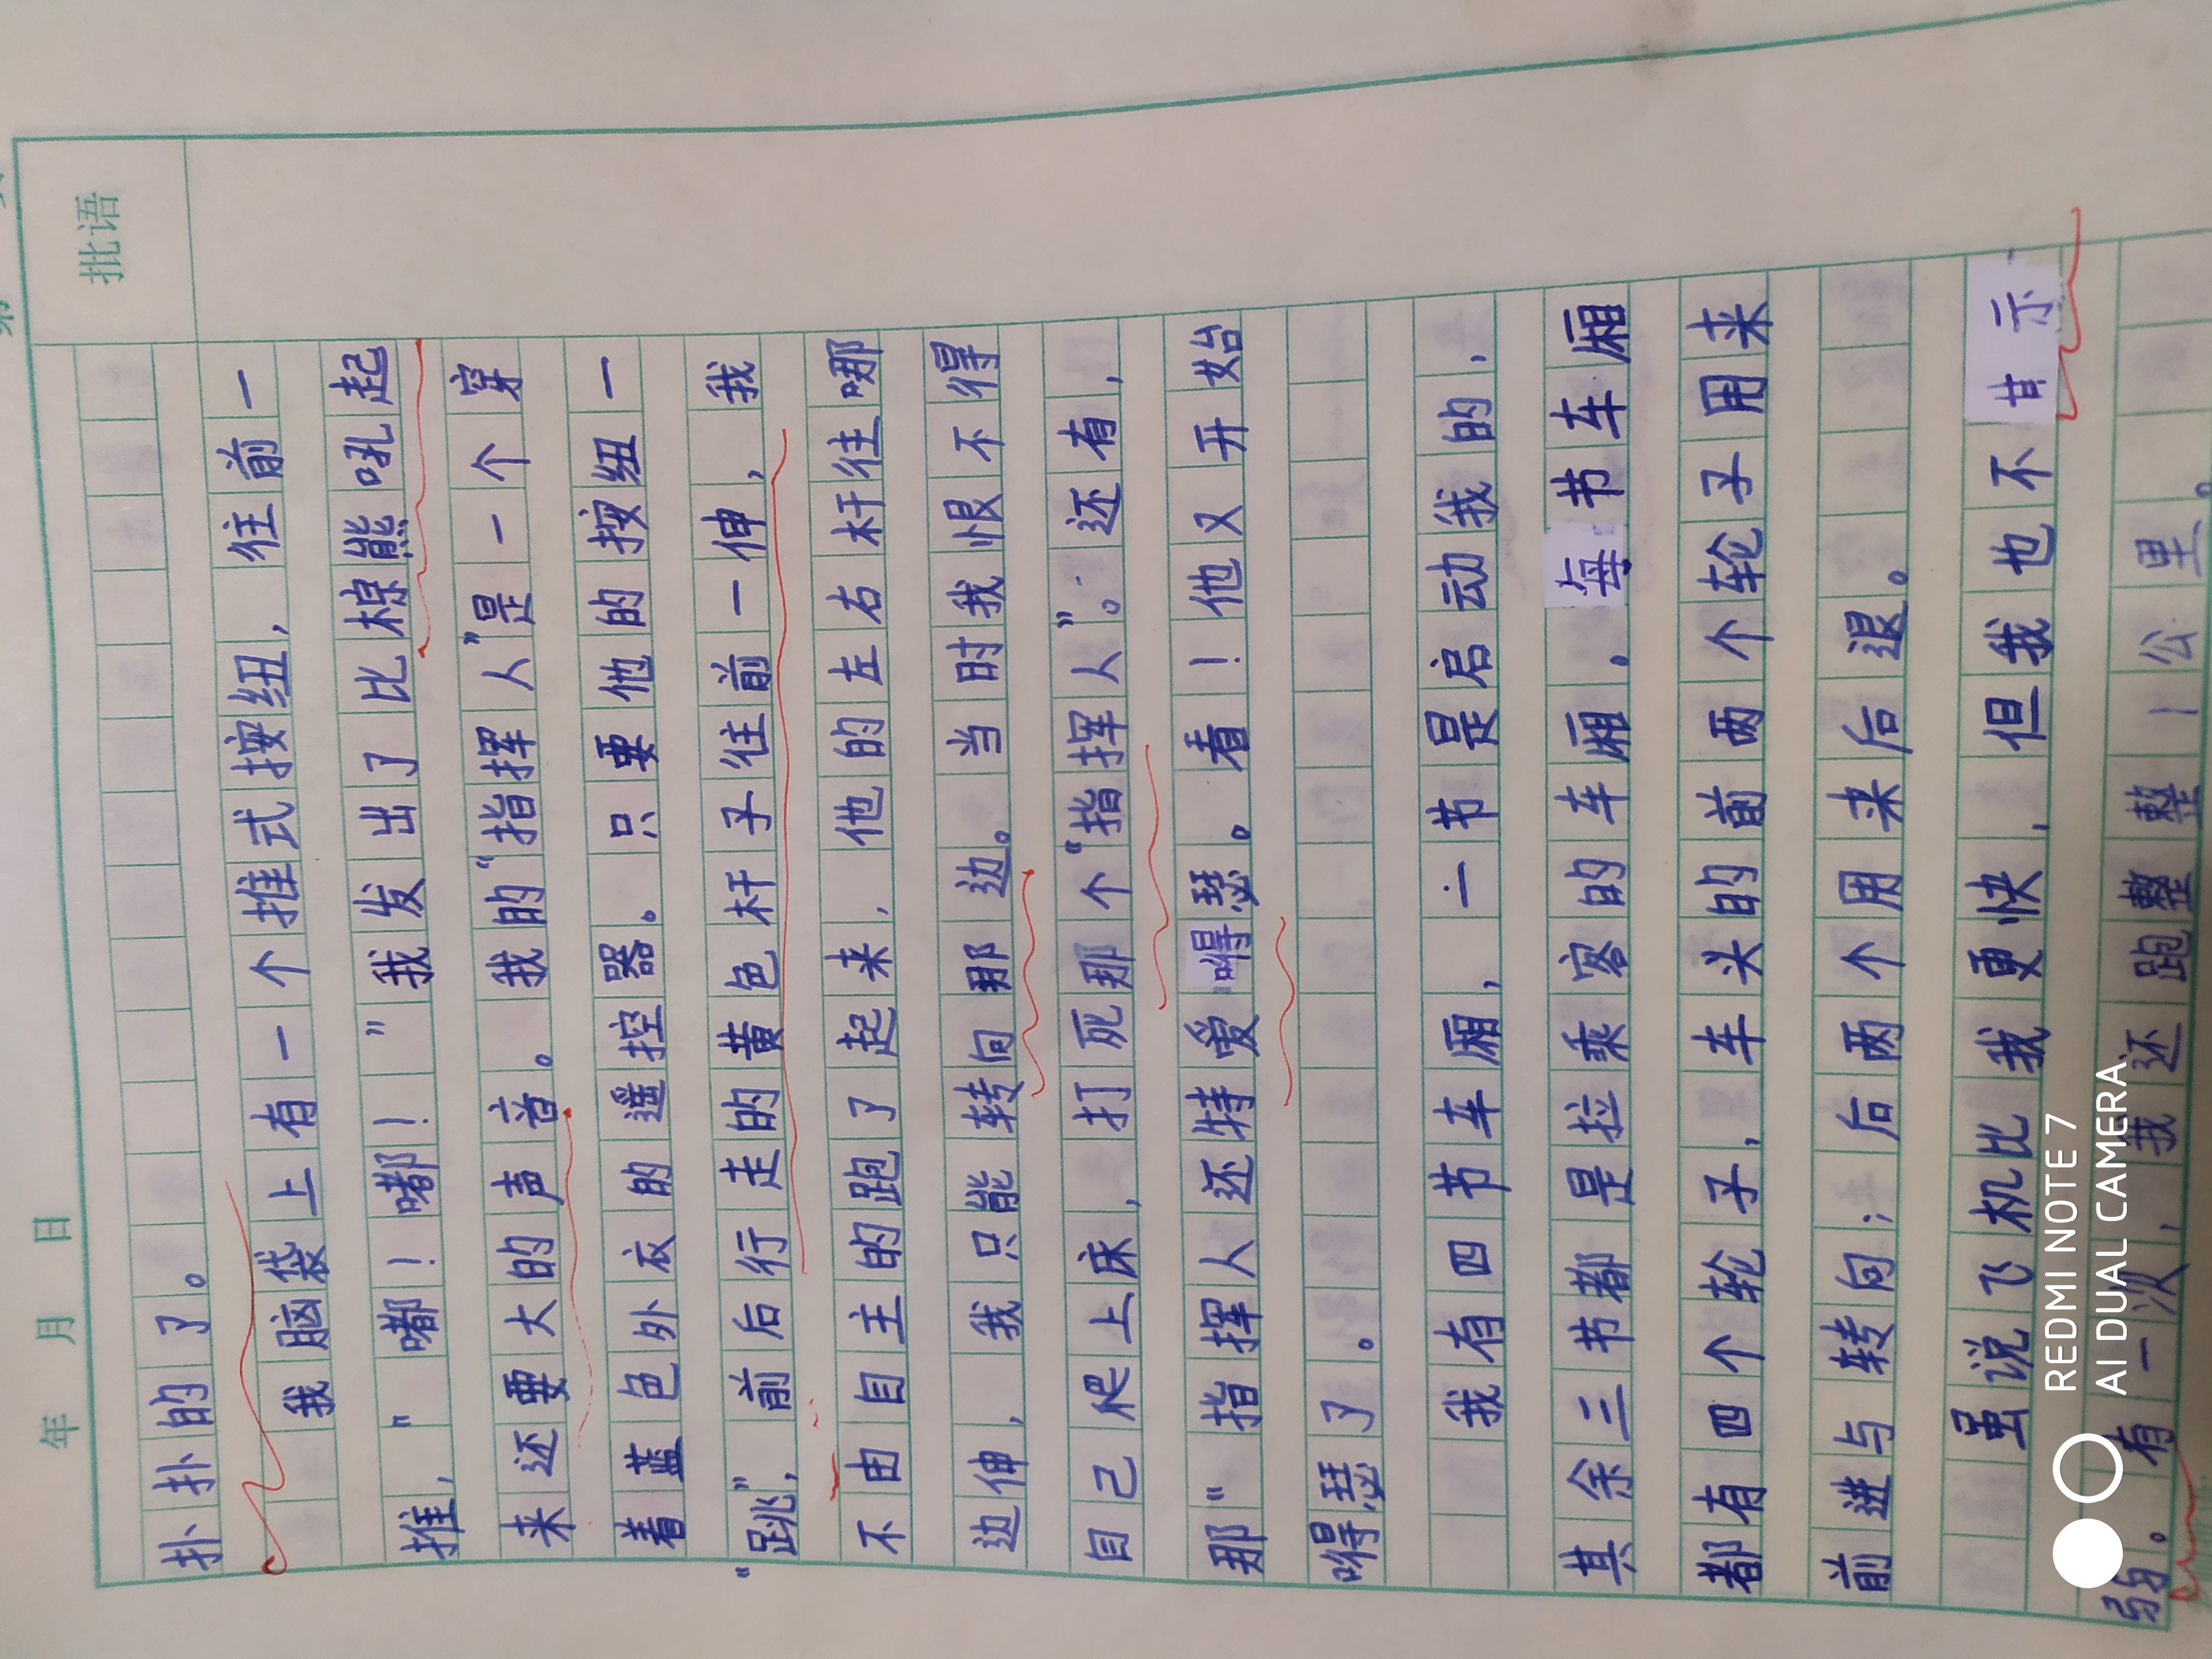 年 月 日
批语
扑扑的了。
我脑袋上有一个推式按纽，往前一
推，"嘟！嘟！"我发出了比棕熊吼起
来还要大的声音。我的"指挥人"是一个穿
着蓝色外衣的遥控器。只要他的按纽一
"跳"，前后行走的黄色杆子往前一伸，我
不由自主的跑了起来，他的左右杆往哪
边伸，我只能转向那边。当时我恨不得
自己爬上床，打死那个"指挥人"。还有，
那"指挥人还特爱嘚瑟。看！他又开始
嘚瑟了。
我有四节车厢，一节是启动我的，
其余三节都是拉乘客的车厢。每节车厢
都有四个轮子，车头的前两个轮子用来
前进与转向；后两个用来后退。
虽说飞机比我更快，但我也不甘示
弱。有一次，我还跑整整1公里。
REDMI NOTE 7
AI DUAL CAMERA